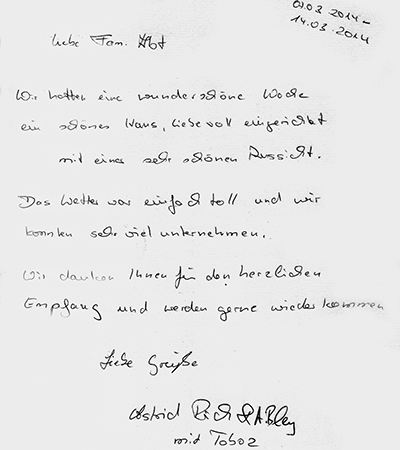 07.03.2014 -
14.03.2014
Liebe Fam. Abt
Wir hatten eine wunderschöne Woche
ein schönes Haus, liebevoll eingerichtet
mit einer sehr schönen Aussicht.
Das Wetter war einfach toll und wir
konnten sehr viel unternehmen.
Wir danken Ihnen für den herzlichen
Empfang und werden gerne wieder kommen
Liebe Grüße
Astrid
mit